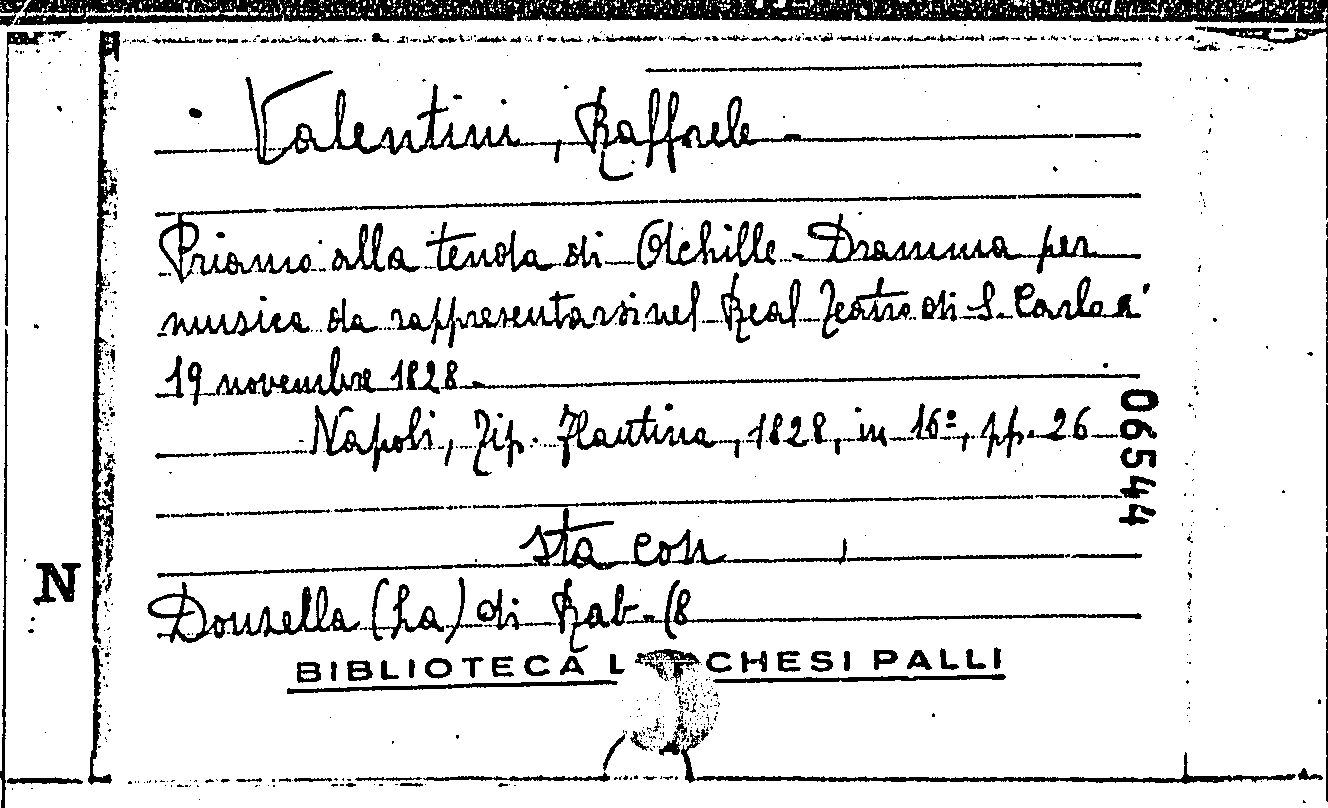 Valentini, Raffaele -
Priamo alla tenda di Achille - Dramma per
musica da rappresentarsi nel Real Teatro di S. Carlo a'
19 novembre 1828 -
Napoli, Tip. Flautina, 1828, in 16º, pp. 26
06544
sta con
N
Donzella (La) di Rab - (8
BIBLIOTECA CHESI PALLI